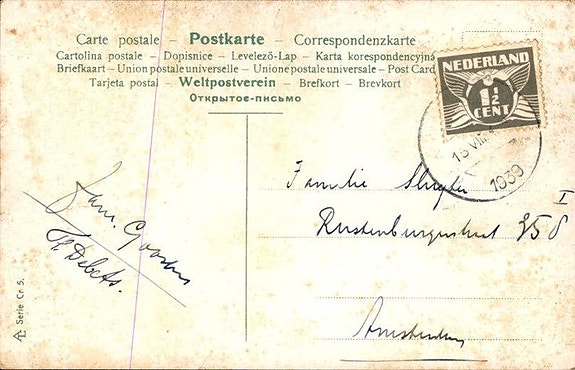 Carte postale – Postkarte – Correspondenzkarte
Cartolina postale – Dopisnice – Levelező-Lap – Karta korespondencyjna
Briefkaart – Union postale universelle – Unione postale universale – Post Card
Tarjeta postal – Weltpostverein – Brefkort – Brevkort
Открытое-письмо
NEDERLAND
1½
CENT
13 VIII
1939
Familie
Rustenburgerstraat 358 I
Amsterdam
Fam. Goossens
Th Debets.
Serie Cr 5.